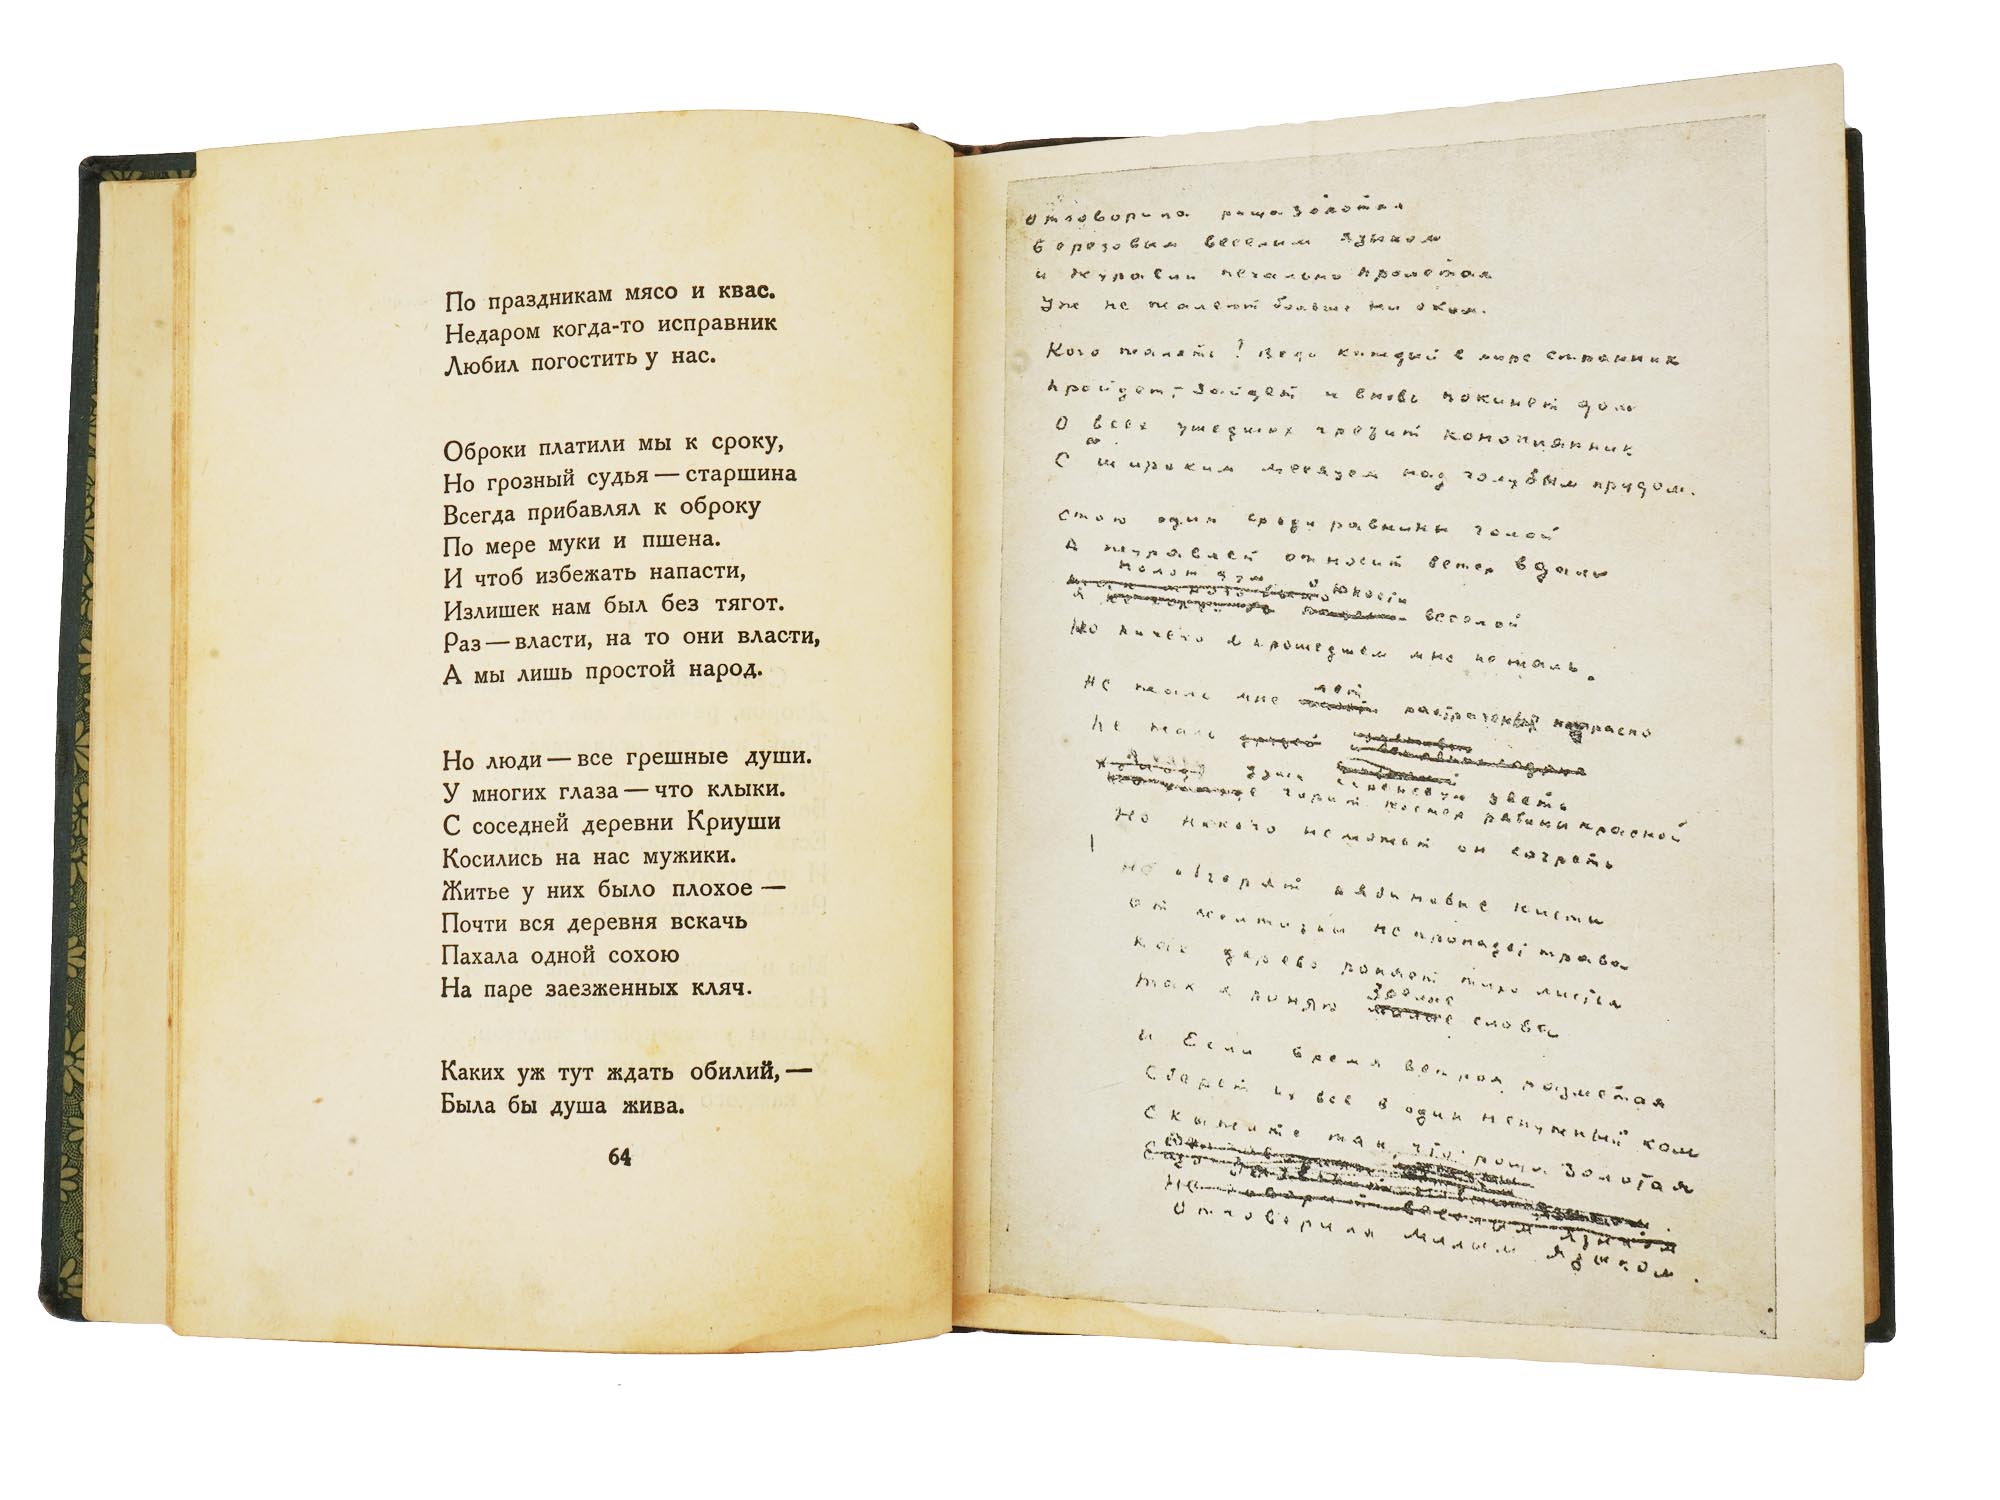 По праздникам мясо и квас.
Недаром когда-то исправник
Любил погостить у нас.
Оброки платили мы к сроку,
Но грозный судья — старшина
Всегда прибавлял к оброку
По мере муки и пшена.
И чтоб избежать напасти,
Излишек нам был без тягот.
Раз — власти, на то они власти,
А мы лишь простой народ.
Но люди — все грешные души.
У многих глаза — что клыки.
С соседней деревни Криуши
Косились на нас мужики.
Житье у них было плохое —
Почти вся деревня вскачь
Пахала одной сохою
На паре заезженных кляч.
Каких уж тут ждать обилий, —
Была бы душа жива.
64
Отговорила роща золотая
Березовым веселым языком
и журавли печально пролетая
Уже не жалеют больше ни о ком.
Кого жалеть? Ведь каждый в мире странник
Пройдет, зайдет и вновь покинет дом
О всех ушедших грезит конопляник
С широким месяцем над голубым прудом.
Стою один среди равнины голой
А журавлей относит ветер вдаль
полон дум о юности
Я веселой
Но ничего в прошедшем мне не жаль.
лет
Не жаль мне растраченных напрасно
Не жаль
души сиреневую цветь
горит костер рябины красной
Но никого не может он согреть
Не обгорят рябиновые кисти
От желтизны не пропадет трава
Как дерево роняет тихо листья
зеленые
Так я роняю милые слова
И Если время ветром разметая
Сгребет их все в один ненужный ком
Скажите так, что роща золотая
Не говорит веселым языком
Отговорила милым языком.